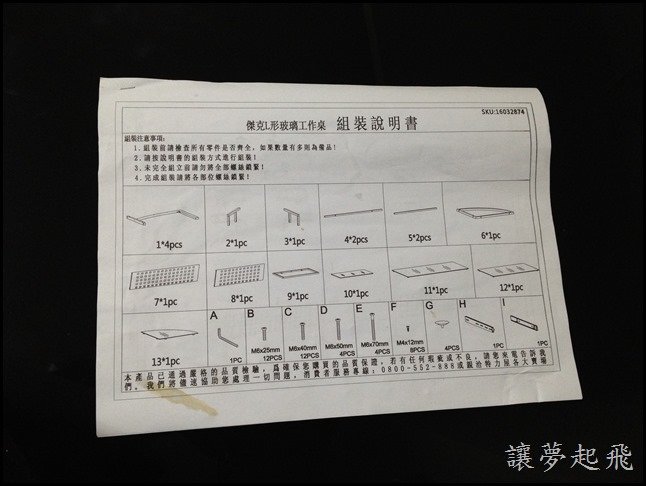 SKU:16032874
傑克L形玻璃工作桌 組裝說明書
組裝注意事項:
1.組裝前請檢查所有零件是否齊全,如果數量有多則為備品!
2.請按說明書的組裝方式進行組裝!
3.未完全組立前請勿將全部螺絲鎖緊!
4.完成組裝請將各部位螺絲鎖緊!
1*4pcs 2*1pc 3*1pc 4*2pcs 5*2pcs 6*1pc
7*1pc 8*1pc 9*1pc 10*1pc 11*1pc 12*1pc
A B C D E F G H I
M6x25mm M6x40mm M6x50mm M6x70mm M4x12mm
13*1pc 1PC 12PCS 12PCS 4PCS 4PCS 8PCS 4PCS 1PC 1PC
本產品已通過嚴格的品質檢驗,為確保您購買的品質保證,若有任何瑕疵或不良,請您來電告訴我
們,我們將儘速協助您處理一切問題,消費者服務專線:0800-552-888或親洽特力屋各大賣場
讓夢起飛